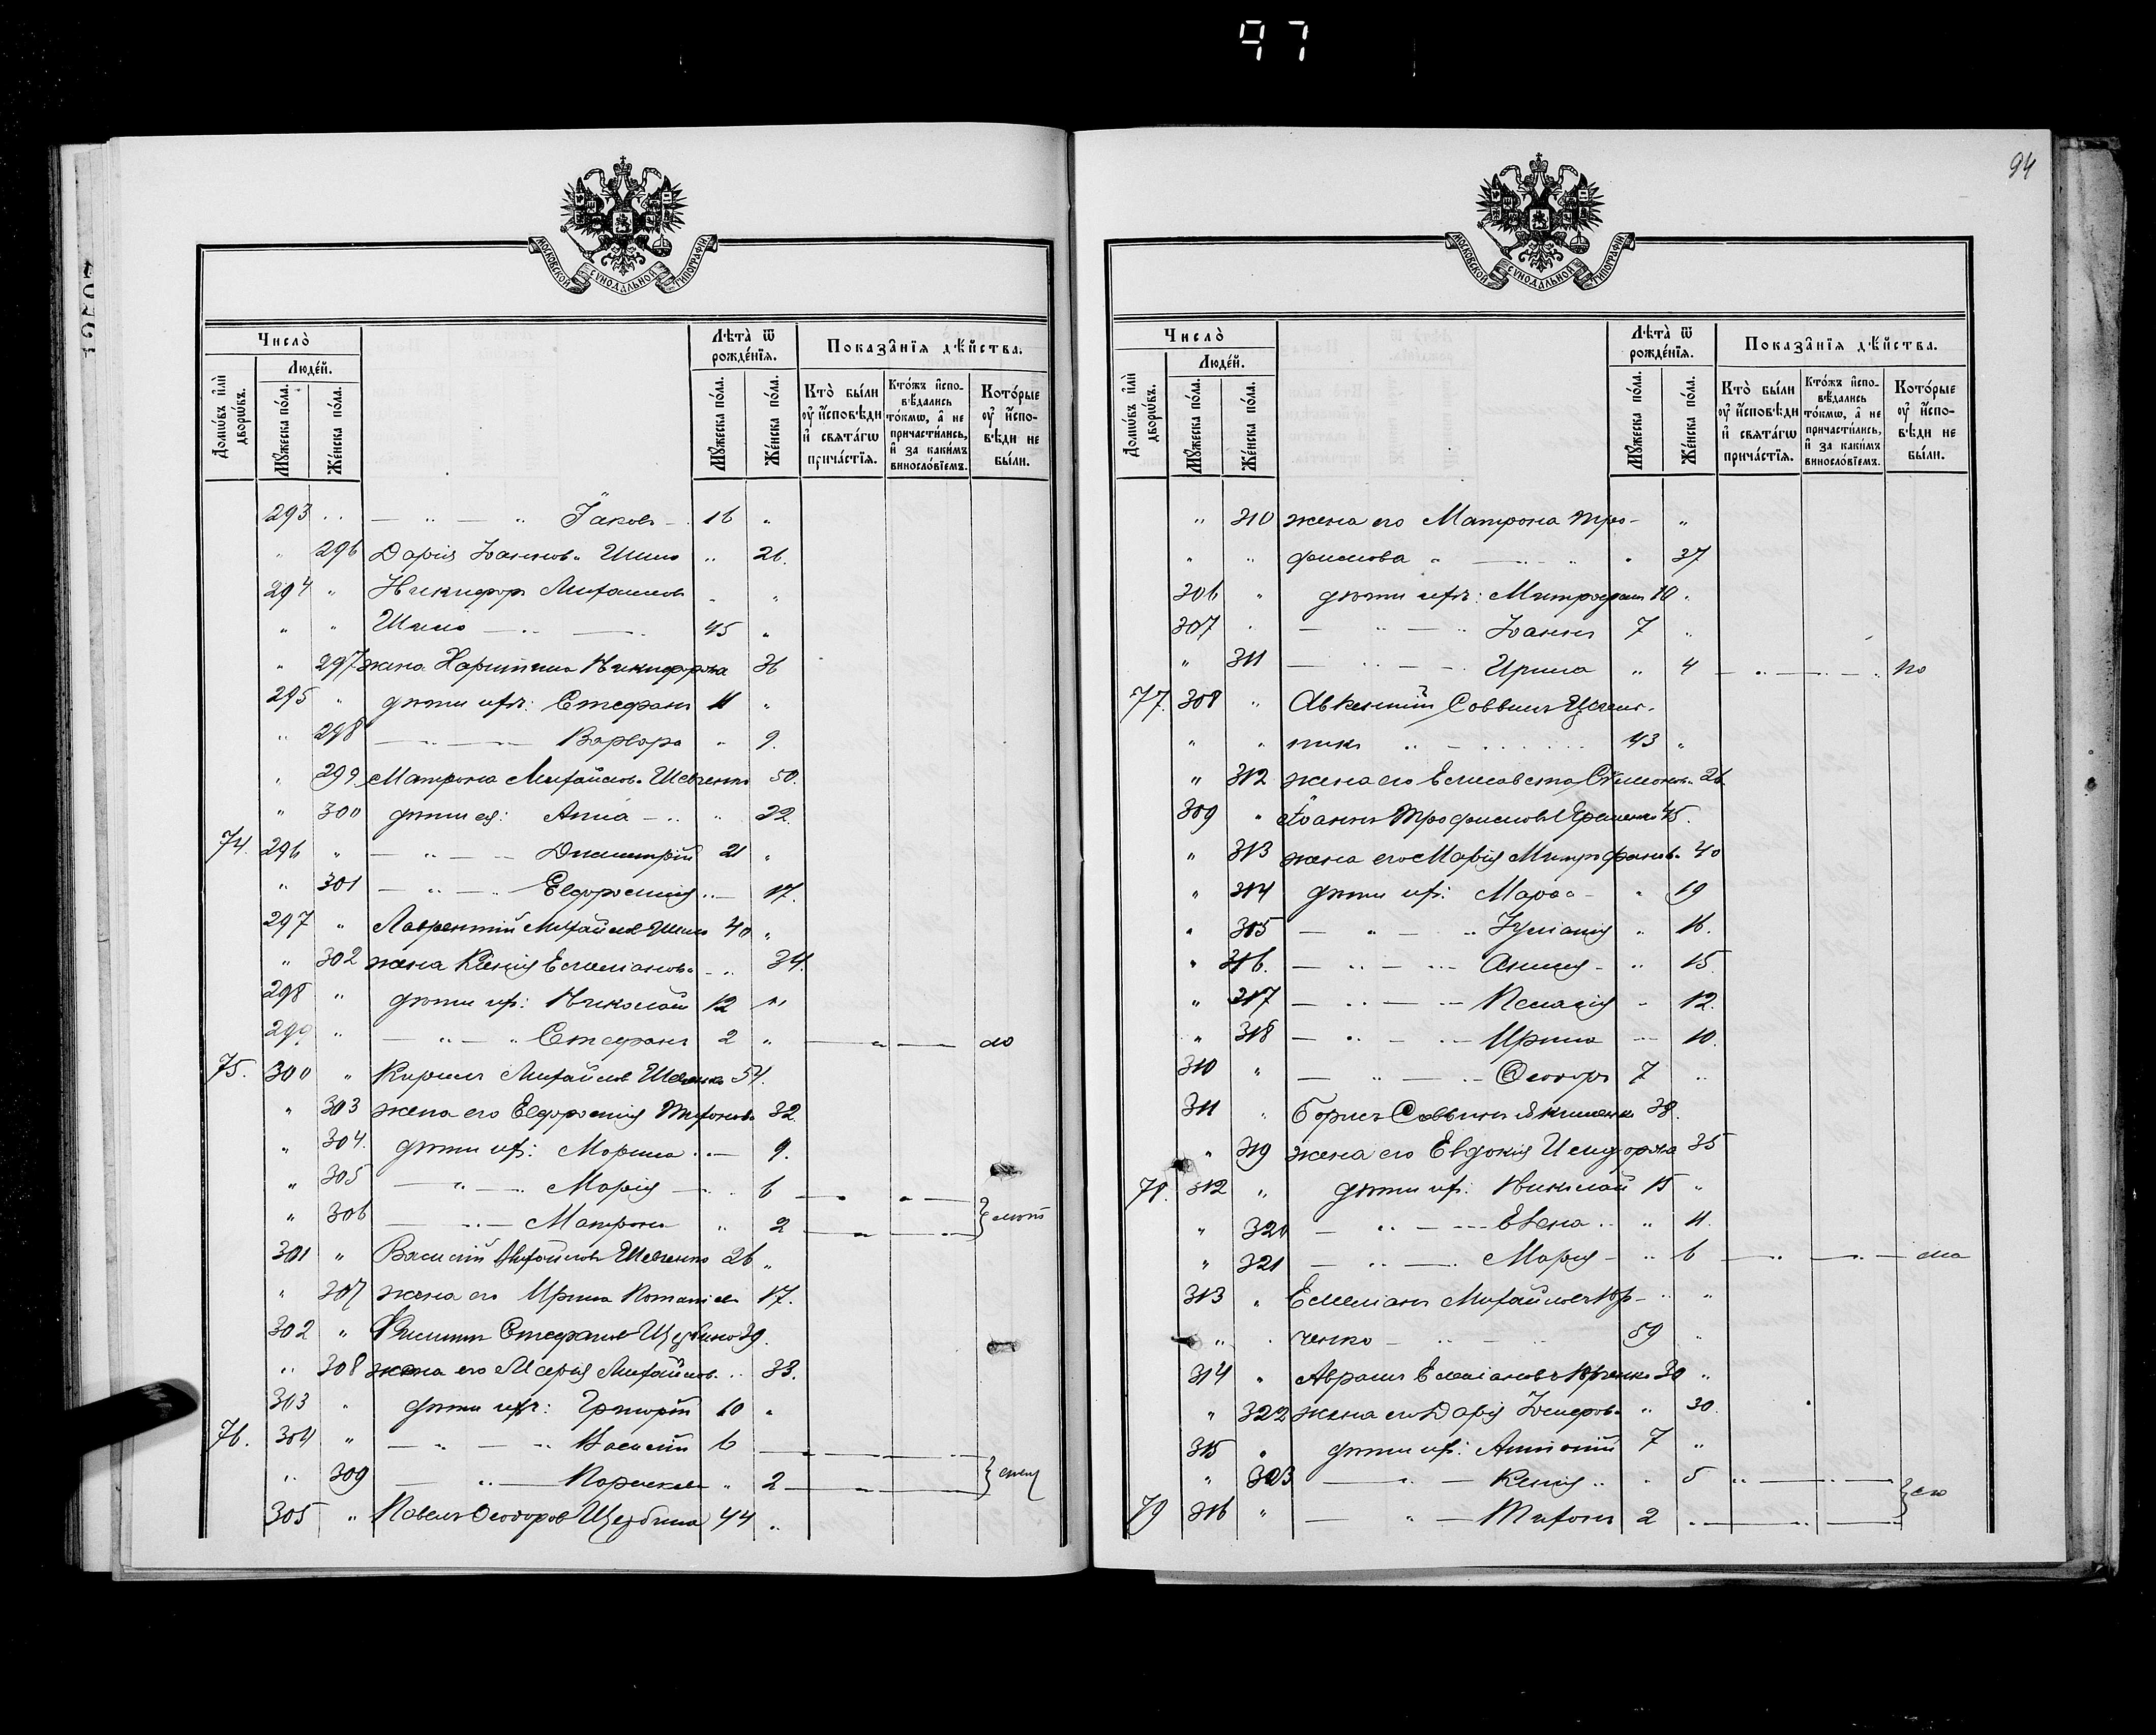 97
МОСКОВСКОЙ СѴНОДАЛЬНОЙ ТИПОГРАФІИ
Число̀
Лѣта̀ ѿ рожде́нїѧ.
Показа̂нїѧ дѣ́йства.
Домѡ́въ и҆лѝ дворѡ́въ.
Люде́й.
Мꙋ́жеска по́ла.
Же́нска по́ла.
Мꙋ́жеска по́ла.
Же́нска по́ла.
Кто̀ бы́ли ᲂу҆ и҆сповѣди и҆ свѧта́гѡ прича́стїѧ.
Кто́жъ и҆спо-вѣдались то́кмѡ, а҆ не причасти́лись, и҆ за каки́мъ винослóвїемъ.
Кото́рые ᲂу҆ и҆спо-вѣди не бы́ли.
293 Іаковъ 16
296 Дарія Іоаннов. 26.
294 " Никифоръ Михаиловъ
45
297 жена Харитина Никифорова 36
295 " дѣти ихъ: Стефанъ 11
298 Варвара 9.
299 Матрона Михайлов. Шевченко 50.
300 дѣти ея: Анна 22.
74. 296 Димитрій 21
301 Евфросинія 17.
297 Лаврентій Михайлов 40
302 жена Ксенія Емеліанов. 34.
298 дѣти их: Николай 12
299 Стефанъ 2
75. 300 " Кирилъ Михайлов Шевченко 54.
303 жена его Евфросинія Тихонов. 32.
304. дѣти их: Марина 9.
305 Марія 6
306 Матрона 2
301 " Василій Михайлов Шевченко 26
307 жена его Ирина 17.
302 " Филиппъ Стефанов Щербина 39.
308 жена его Марія Михайлов. 33.
303 дѣти ихъ: Григорій 10
76. 304 " Василій 6
309 Параскева 2
305 " Павелъ Ѳеодоров Щербина 44
94
МОСКОВСКОЙ СѴНОДАЛЬНОЙ ТИПОГРАФІИ
Число̀
Лѣта̀ ѿ рожде́нїѧ.
Показа̂нїѧ дѣ́йства.
Домѡ́въ и҆лѝ дворѡ́въ.
Люде́й.
Мꙋ́жеска по́ла.
Же́нска по́ла.
Мꙋ́жеска по́ла.
Же́нска по́ла.
Кто̀ бы́ли ᲂу҆ и҆сповѣди и҆ свѧта́гѡ прича́стїѧ.
Кто́жъ и҆спо-вѣдались то́кмѡ, а҆ не причасти́лись, и҆ за каки́мъ винослóвїемъ.
Кото́рые ᲂу҆ и҆спо-вѣди не бы́ли.
310 жена его Матрона Тро-
фимова 37
306 дѣти ихъ: Митрофанъ 10
307 Іоаннъ 7
311 Ирина 4
77. 308 Авксентій Саввинъ
43
312 жена его Елисавета Симонов. 26
309 Іоаннъ Трофимовъ 45.
313 жена его Марія Митрофанов. 40
314 дѣти их: 19
315 Іуліанія 16.
316. 15.
317 Пелагія 12.
318 Ирина 10.
310 Ѳеодоръ 7
311 Борисъ Саввинъ Якименко 38.
319 жена его Евдокія Исидорова 35
78. 312 дѣти их: Николай 15
320 Елена 11.
321 Марія 6
313 Емеліанъ Михайловъ Юр-
ченко 59
314 Аврамъ Емеліановъ Юрченко 30
322 жена его Дарія 30.
315 дѣти их: Антоній 7
323 Ксенія 5
79 316 Тихонъ 2